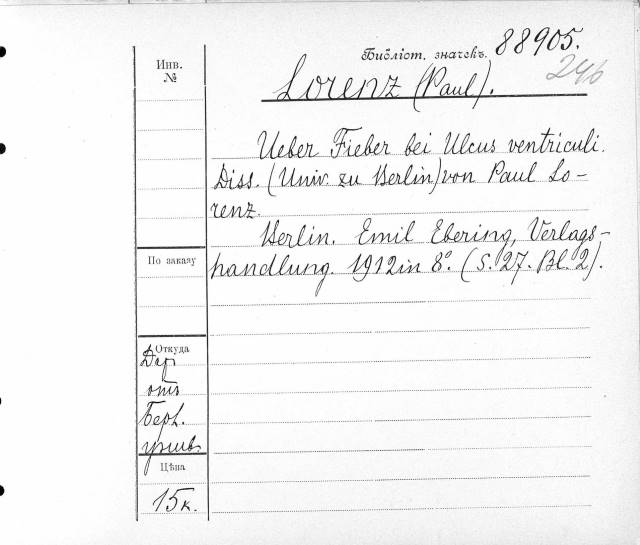 Библіот. значекъ. 88905.
246
Инв.
№
Lorenz (Paul).
Ueber Fieber bei Ulcus ventriculi.
Diss. (Univ. zu Berlin) von Paul Lo-
renz.
Berlin. Emil Ebering, Verlags-
handlung. 1912 in 8º. (S. 27. Bl. 2).
По заказу
Откуда
Дар
отъ
Берл.
унив.
Цѣна
15 к.